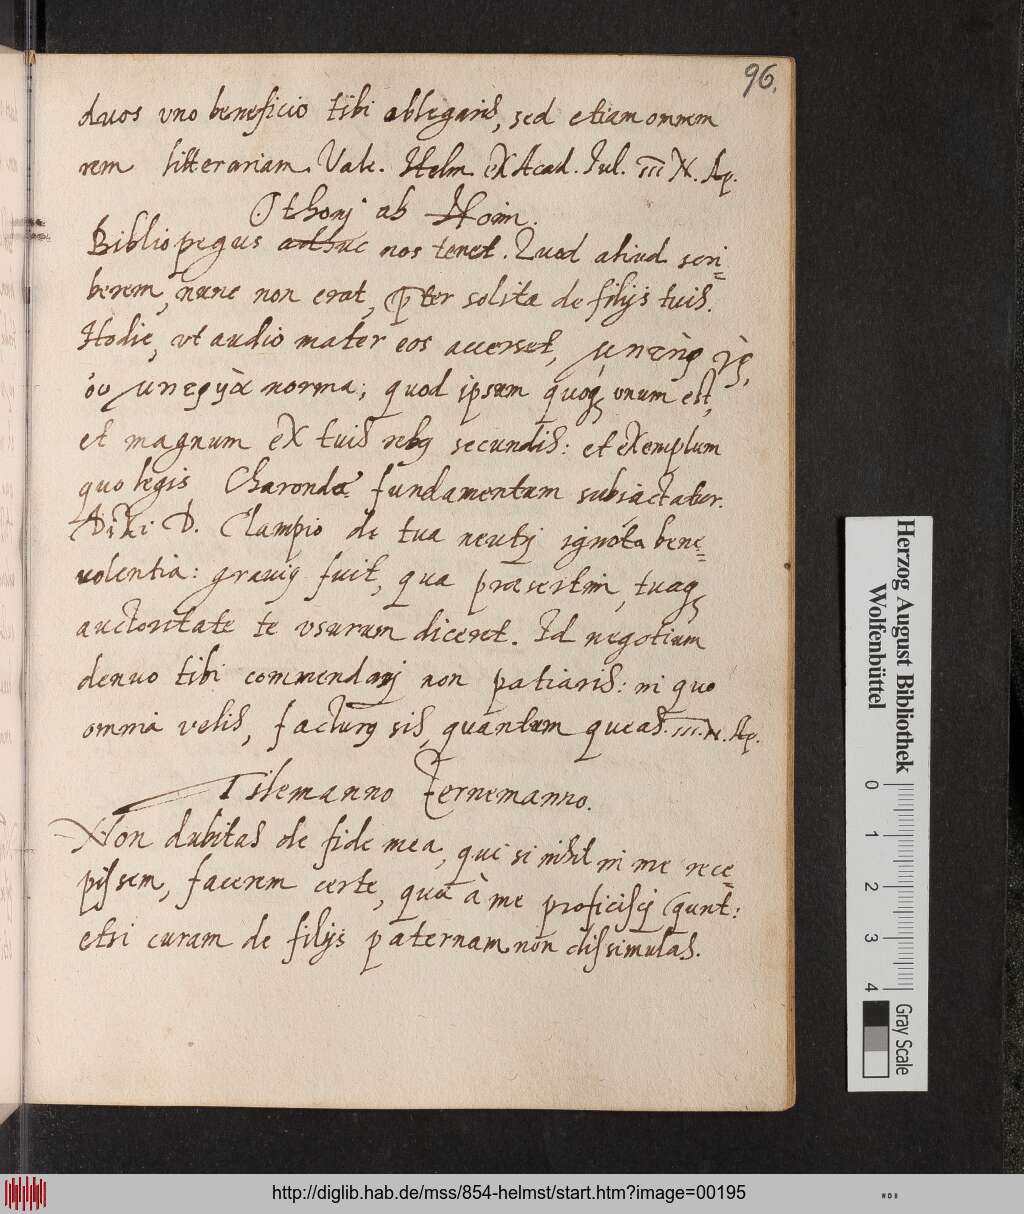 96.
duos vno beneficio tibi ablegaris, sed etiam omnem
rem litterariam. Vale. Helm. ex Acad. Iul. III N. Ap.
Othonj ab Hoim.
Bibliopegus adhuc nos tenet. Quod aliud scri=
berem, nunc non erat, pter solita de filijs tuis.
Hodie, vt audio mater eos accerset,
norma; quod ipsum quoq vnum est,
et magnum ex tuis rebq secundis: et exemplum
quo legis Charondæ fundamentum subiactatur.
D. Clampio de tua neutiq ignota bene=
volentia: grauis fuit, qua præsertim, tuaq
auctoritate te vsurum diceret. Id negotium
denuo tibi commendarj non patiaris: in quo
omnia velis, facturq sis, quantum queas. III. N. Ap.
Tilemanno Zernemanno.
Non dubitas de fide mea, qui si nihil in me rece=
pissem, facerem certe, quæ à me proficiscj queunt:
etsi curam de filijs paternam non dissimulas.
Herzog August Bibliothek
Wolfenbüttel
0 1 2 3 4
Gray Scale
http://diglib.hab.de/mss/854-helmst/start.htm?image=00195
WDB